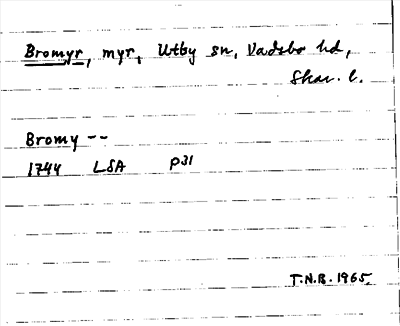 Bromyr, myr, Utby sn, Vadsbo hd,
Skar. l.
Bromy --
1744 LSA P31
T.N.B. 1965.